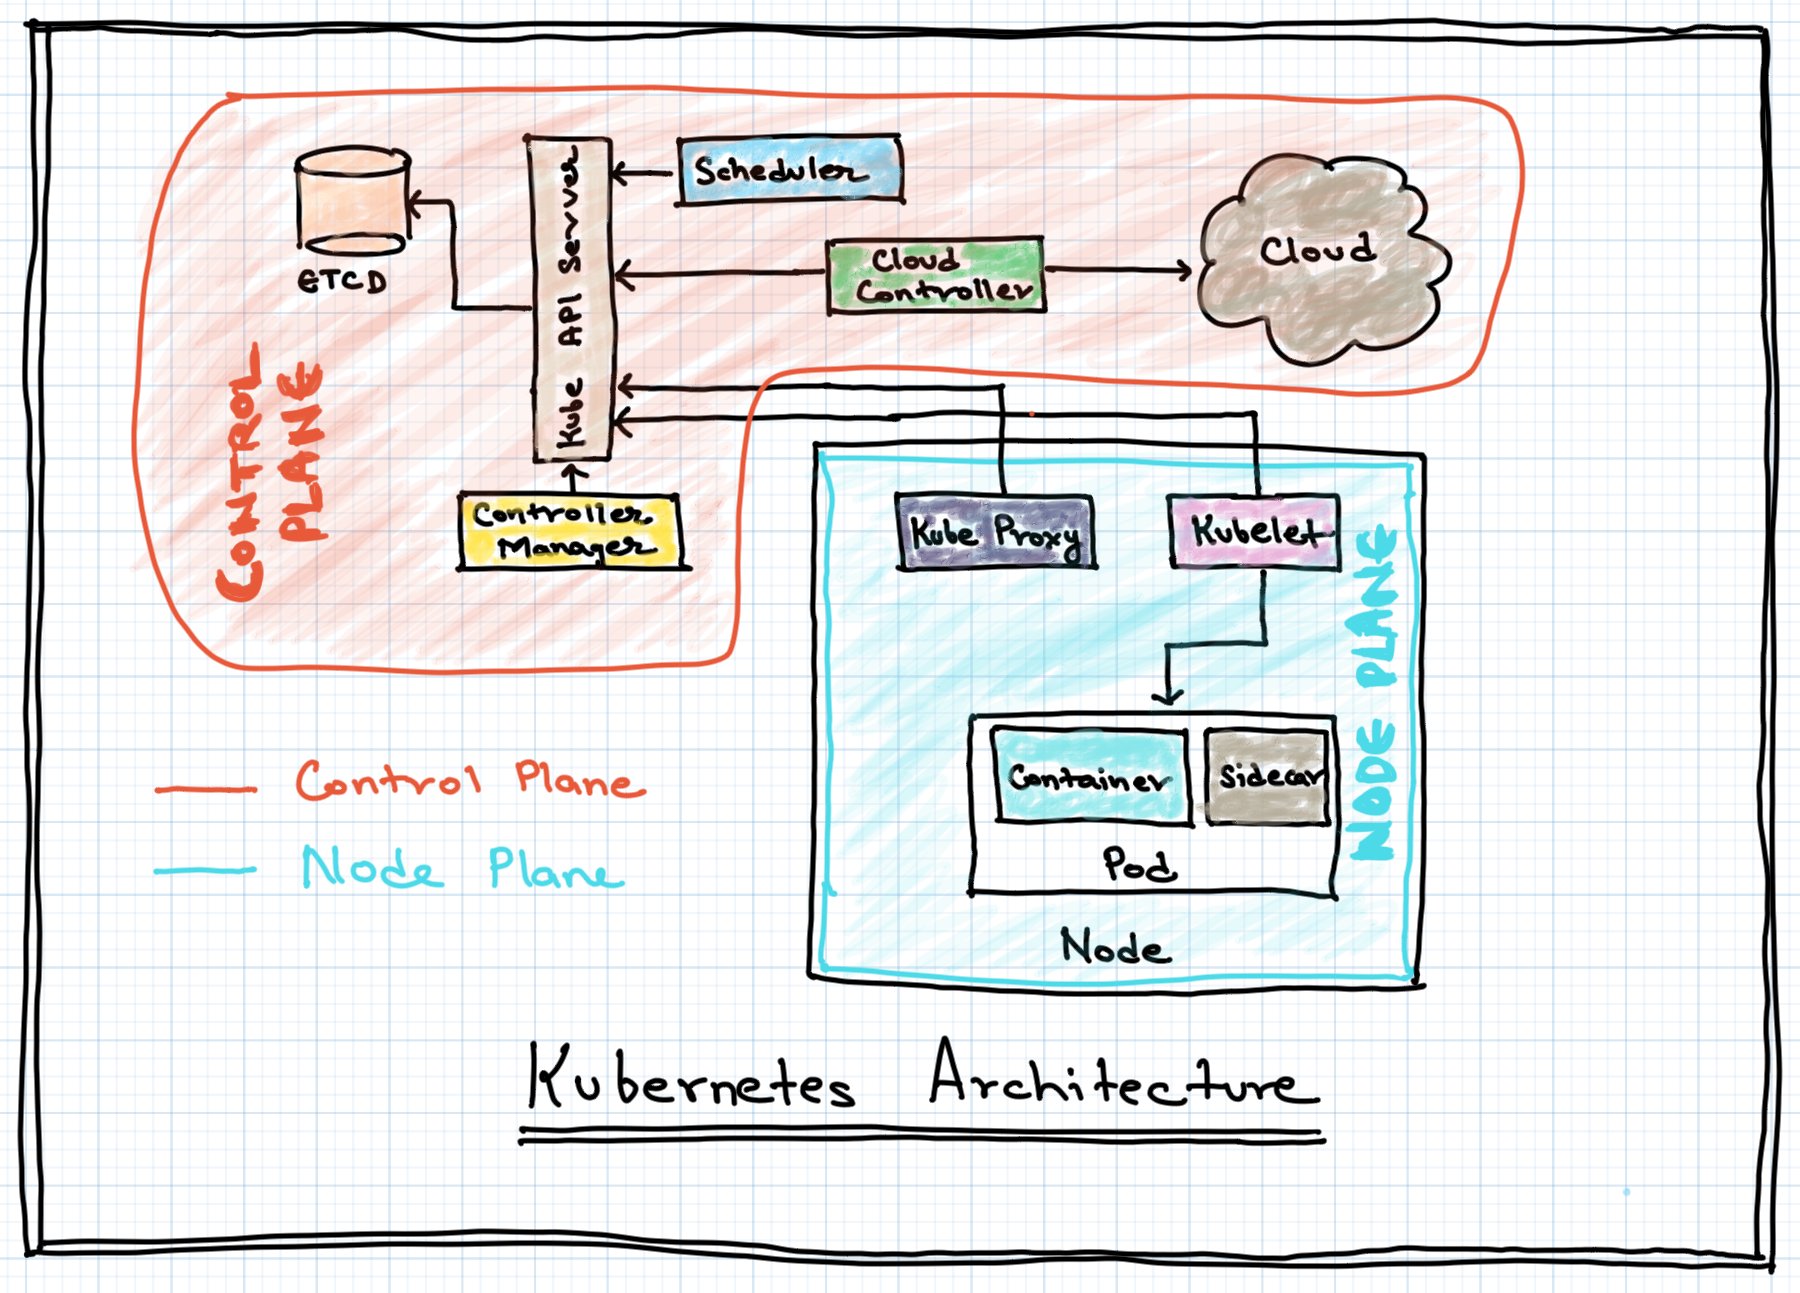 Scheduler
Kube API Server
Cloud
Controller
Cloud
ETCD
CONTROL
PLANE
Controller
Manager
Kube Proxy
Kubelet
NODE PLANE
Container
Sidecar
Pod
Node
Control Plane
Node Plane
Kubernetes Architecture